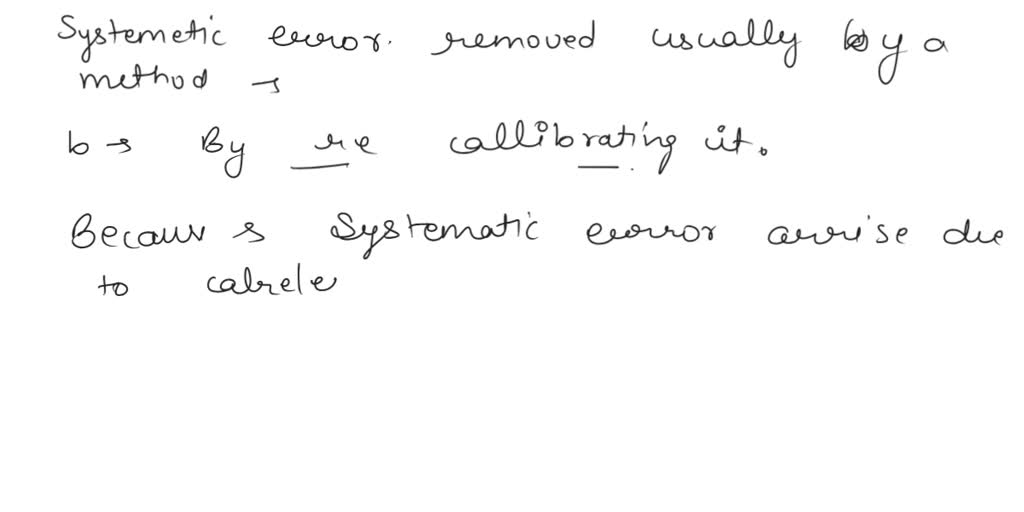 Systemetic error. removed usually by a
method →
b → By re callibrating it.
Becaus s Systematic error arrise due
to